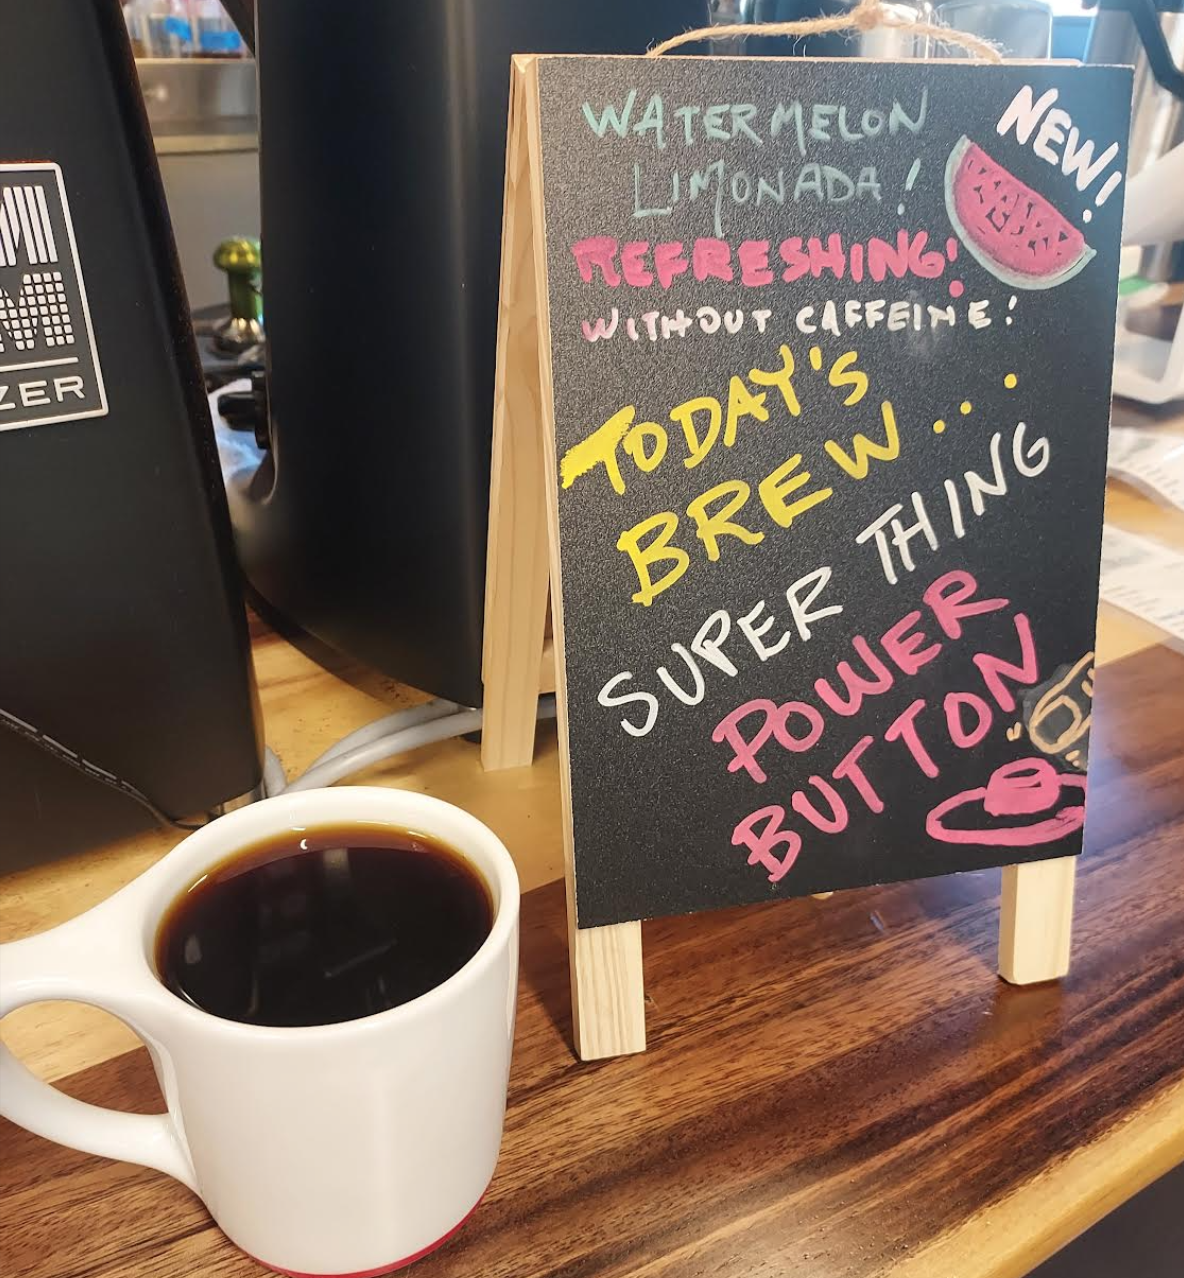 ZER
WATERMELON
LIMONADA!
NEW!
REFRESHING!
WITHOUT CAFFEINE!
TODAY'S
BREW...
SUPER THING
POWER
BUTTON